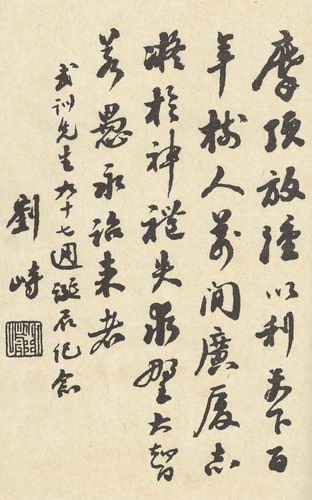 摩頂放踵以利天下百
年樹人萬間廣廈志
凝於神禮失求野大智
若愚永詒來者
武訓先生九十七週誕辰紀念
劉峙